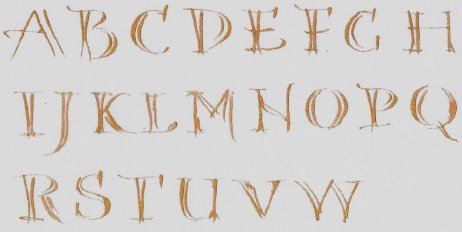 A B C D E F G H
I J K L M N O P Q
R S T U V W